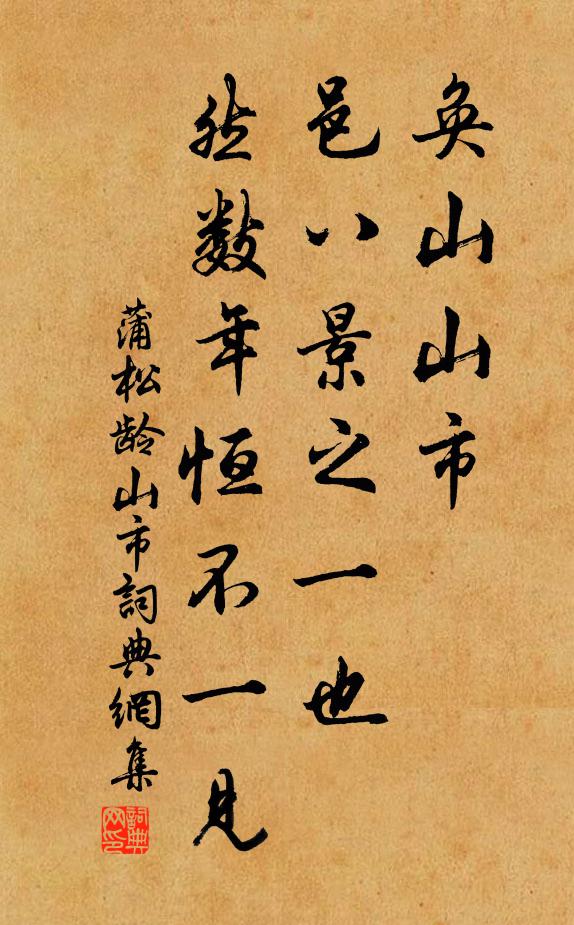 奂山山市
邑八景之一也
然数年恒不一见
蒲松龄山市詞典網集
詞典网印